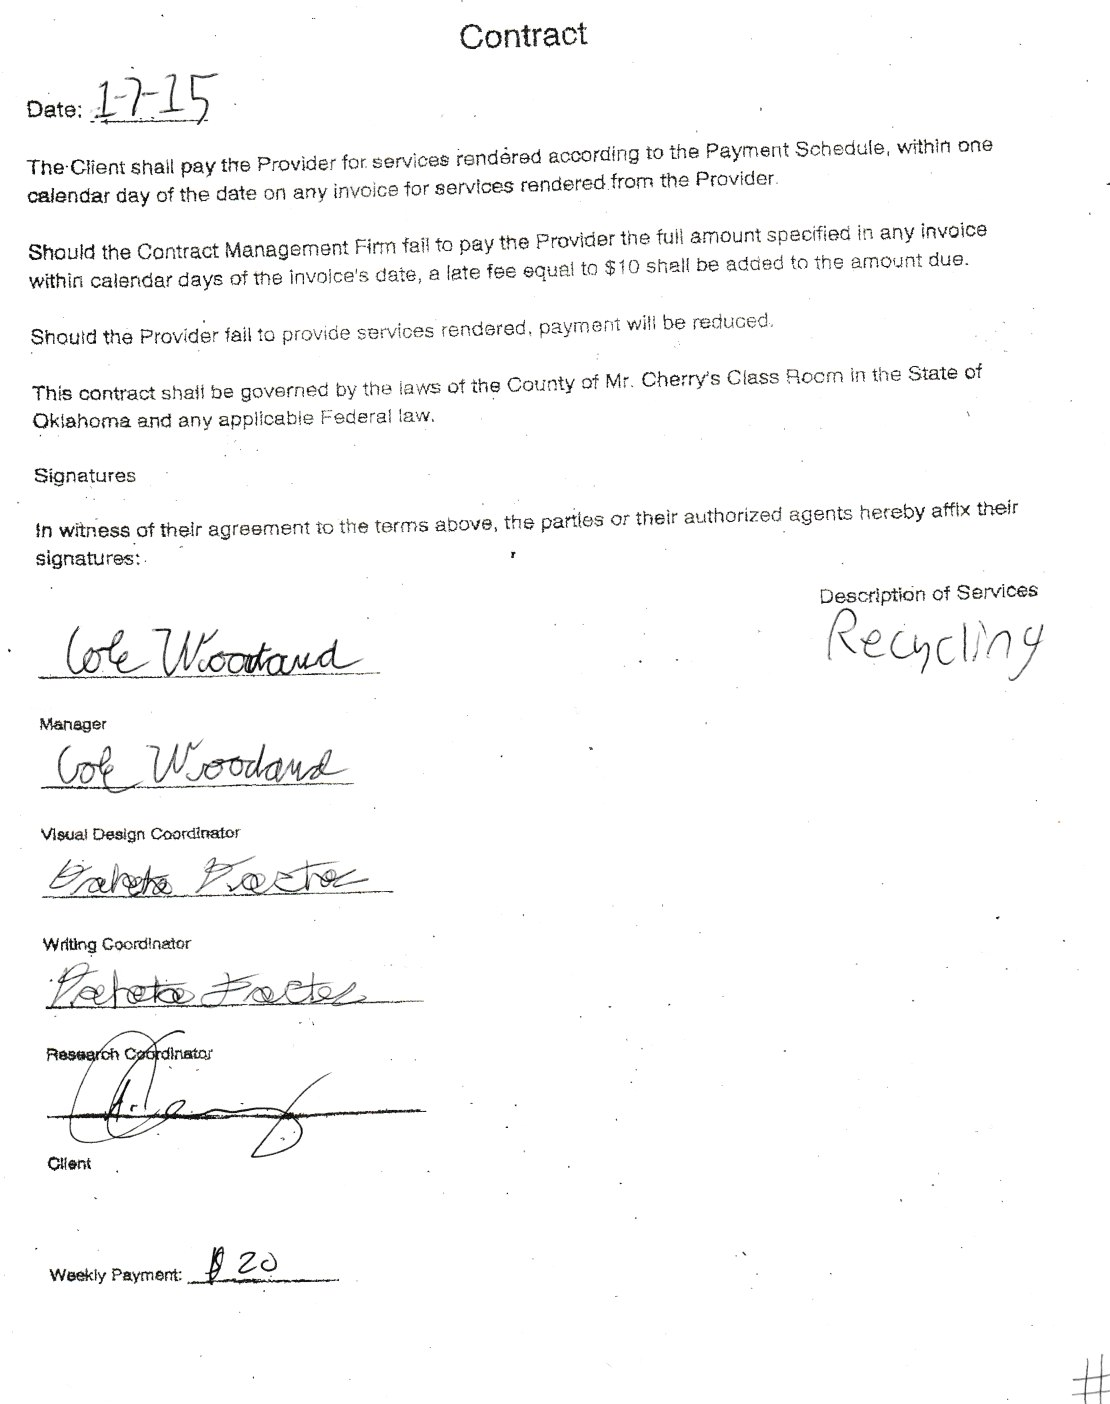 Contract
Date: 1-7-15
The Client shall pay the Provider for services rendered according to the Payment Schedule, within one
calendar day of the date on any invoice for services rendered from the Provider.
Should the Contract Management Firm fail to pay the Provider the full amount specified in any invoice
within calendar days of the invoice's date, a late fee equal to $10 shall be added to the amount due.
Should the Provider fail to provide services rendered, payment will be reduced.
This contract shall be governed by the laws of the County of Mr. Cherry's Class Room in the State of
Oklahoma and any applicable Federal law.
Signatures
In witness of their agreement to the terms above, the parties or their authorized agents hereby affix their
signatures:
Description of Services
Recycling
Cole
Manager
Cole
Visual Design Coordinator
Writing Coordinator
Research Coordinator
Client
Weekly Payment: $ 20
#